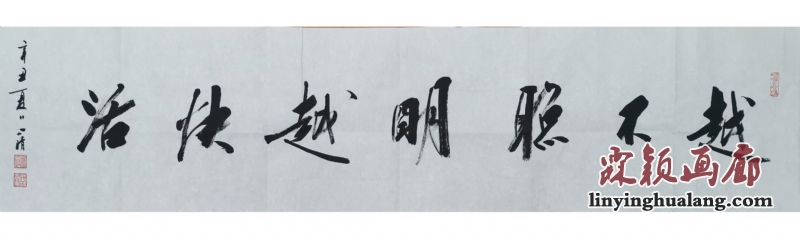 越不聪明越快活
辛丑夏日
霖颖画廊
linyinghualang.com